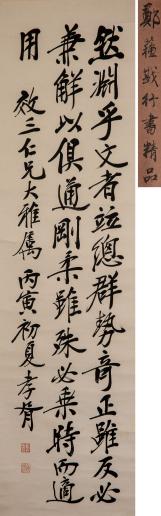 鄭蘓戡行書精品
然淵乎文者竝總群勢竒正雖反必
兼解以俱通剛柔雖殊必乘時而適
用 效三仁兄大雅屬 丙寅初夏孝胥